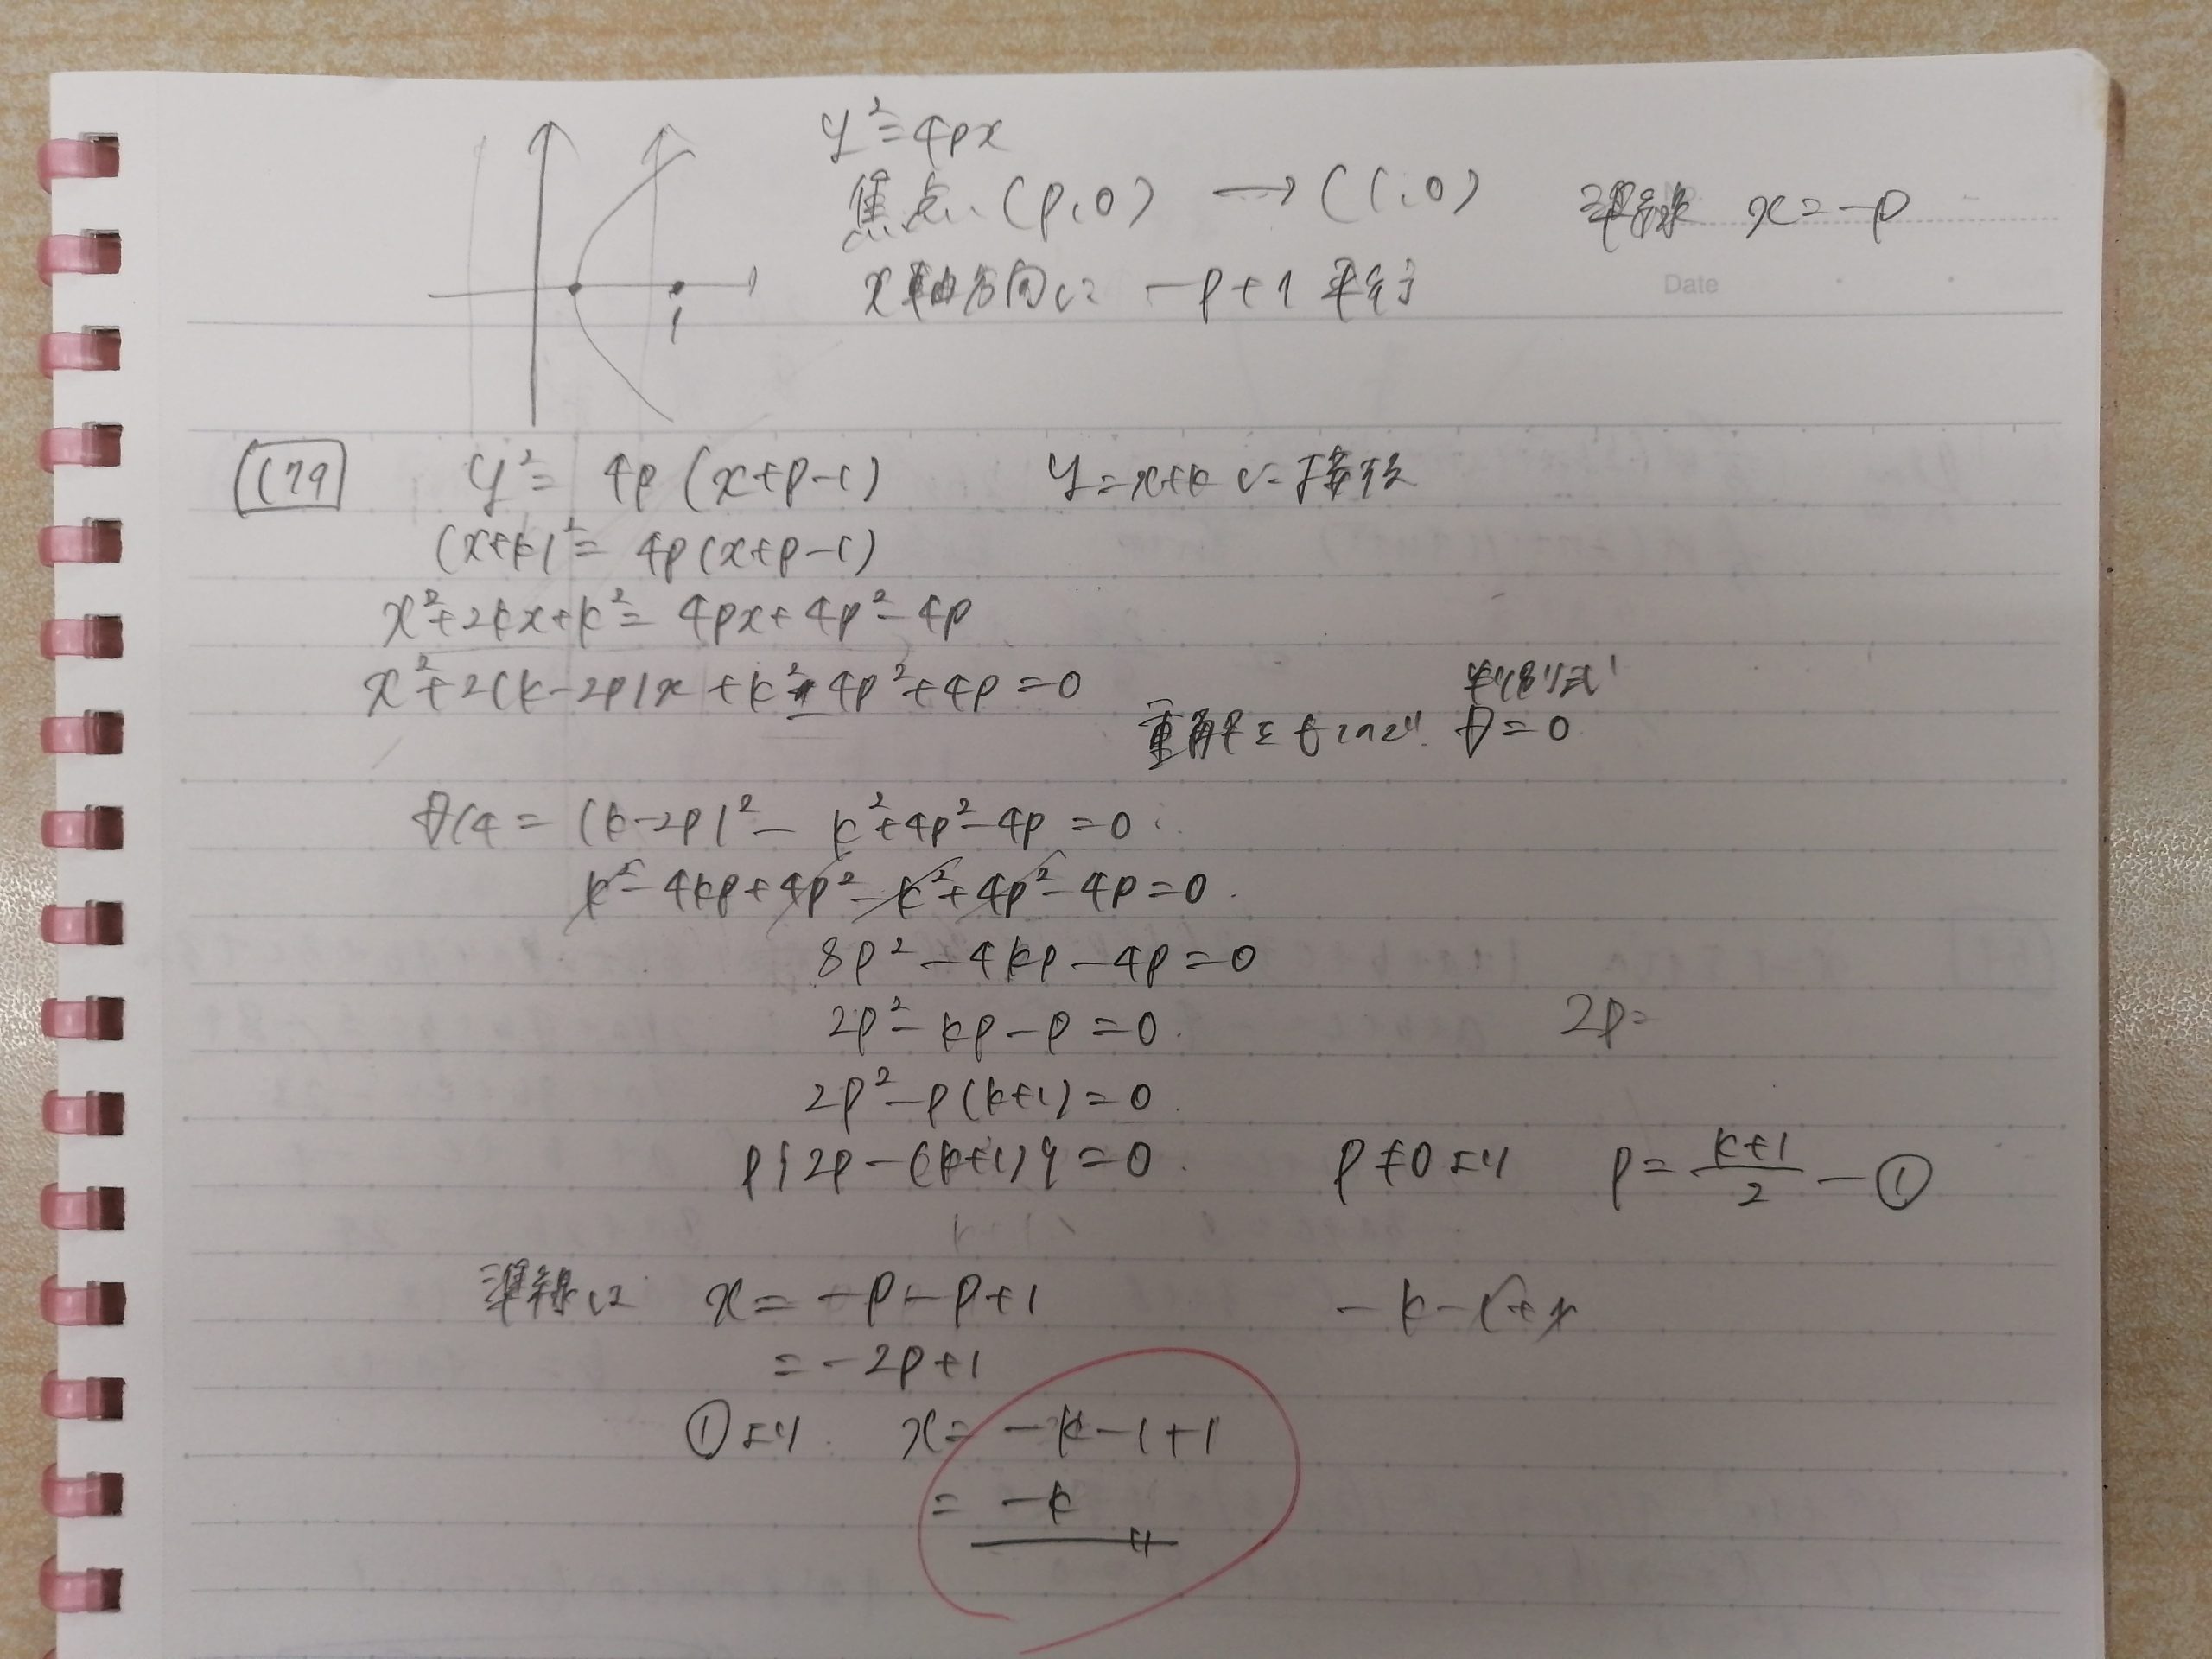 y²=4px
焦点 (p,0) → (1,0) 準線 x=-p
x軸方向に -p+1 平行
Date
1
179 y²= 4p(x+p-1) y=x+k に接する
(x+k)²= 4p(x+p-1)
x²+2kx+k²= 4px+4p²-4p
x²+2(k-2p)x+k²-4p²+4p=0
判別式
重解をもつので D=0
D/4= (k-2p)²- k²+4p²-4p=0
k²-4kp+4p²-k²+4p²-4p=0.
8p²-4kp-4p=0
2p²-kp-p=0. 2p=
2p²-p(k+1)=0.
p{2p-(k+1)}=0. p≠0より p=\frac{k+1}{2} -①
準線は x=-p-p+1 -k-1+1
=-2p+1
①より x= -k-1+1
= -k